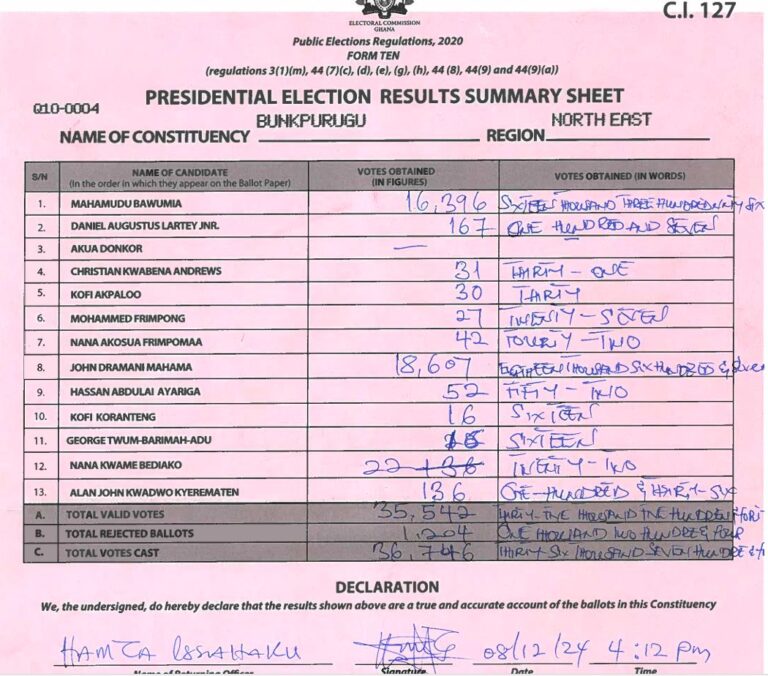 C.I. 127
ELECTORAL COMMISSION
GHANA
Public Elections Regulations, 2020
FORM TEN
(regulations 3(1)(m), 44 (7)(c), (d), (e), (g), (h), 44 (8), 44(9) and 44(9)(a))
PRESIDENTIAL ELECTION RESULTS SUMMARY SHEET
Q10-0004
NAME OF CONSTITUENCY BUNKPURUGU REGION NORTH EAST
S/N NAME OF CANDIDATE (In the order in which they appear on the Ballot Paper) VOTES OBTAINED (IN FIGURES) VOTES OBTAINED (IN WORDS)
1. MAHAMUDU BAWUMIA 16,396 SIXTEEN THOUSAND THREE HUNDRED SIX
2. DANIEL AUGUSTUS LARTEY JNR. 167 ONE HUNDRED AND SEVEN
3. AKUA DONKOR —
4. CHRISTIAN KWABENA ANDREWS 31 THIRTY - ONE
5. KOFI AKPALOO 30 THIRTY
6. MOHAMMED FRIMPONG 27 TWENTY - SEVEN
7. NANA AKOSUA FRIMPOMAA 42 FOURTY - TWO
8. JOHN DRAMANI MAHAMA 18,607 EIGHTEEN THOUSAND SIX HUNDRED & Seven
9. HASSAN ABDULAI AYARIGA 52 FIFTY - TWO
10. KOFI KORANTENG 16 SIXTEEN
11. GEORGE TWUM-BARIMAH-ADU SIXTEEN
12. NANA KWAME BEDIAKO 22 136 TWENTY - TWO
13. ALAN JOHN KWADWO KYEREMATEN 136 ONE-HUNDRED & THIRTY-SIX
A. TOTAL VALID VOTES 35,542 THIRTY-FIVE THOUSAND FIVE HUNDRED & FORT
B. TOTAL REJECTED BALLOTS 1,204 ONE THOUSAND TWO HUNDRED & FOUR
C. TOTAL VOTES CAST 36,746 THIRTY SIX THOUSAND SEVEN HUNDRED &
DECLARATION
We, the undersigned, do hereby declare that the results shown above are a true and accurate account of the ballots in this Constituency
HAMZA ISSAHAKU 08/12/24 4:12 pm
Name of Returning Officer Signature Date Time